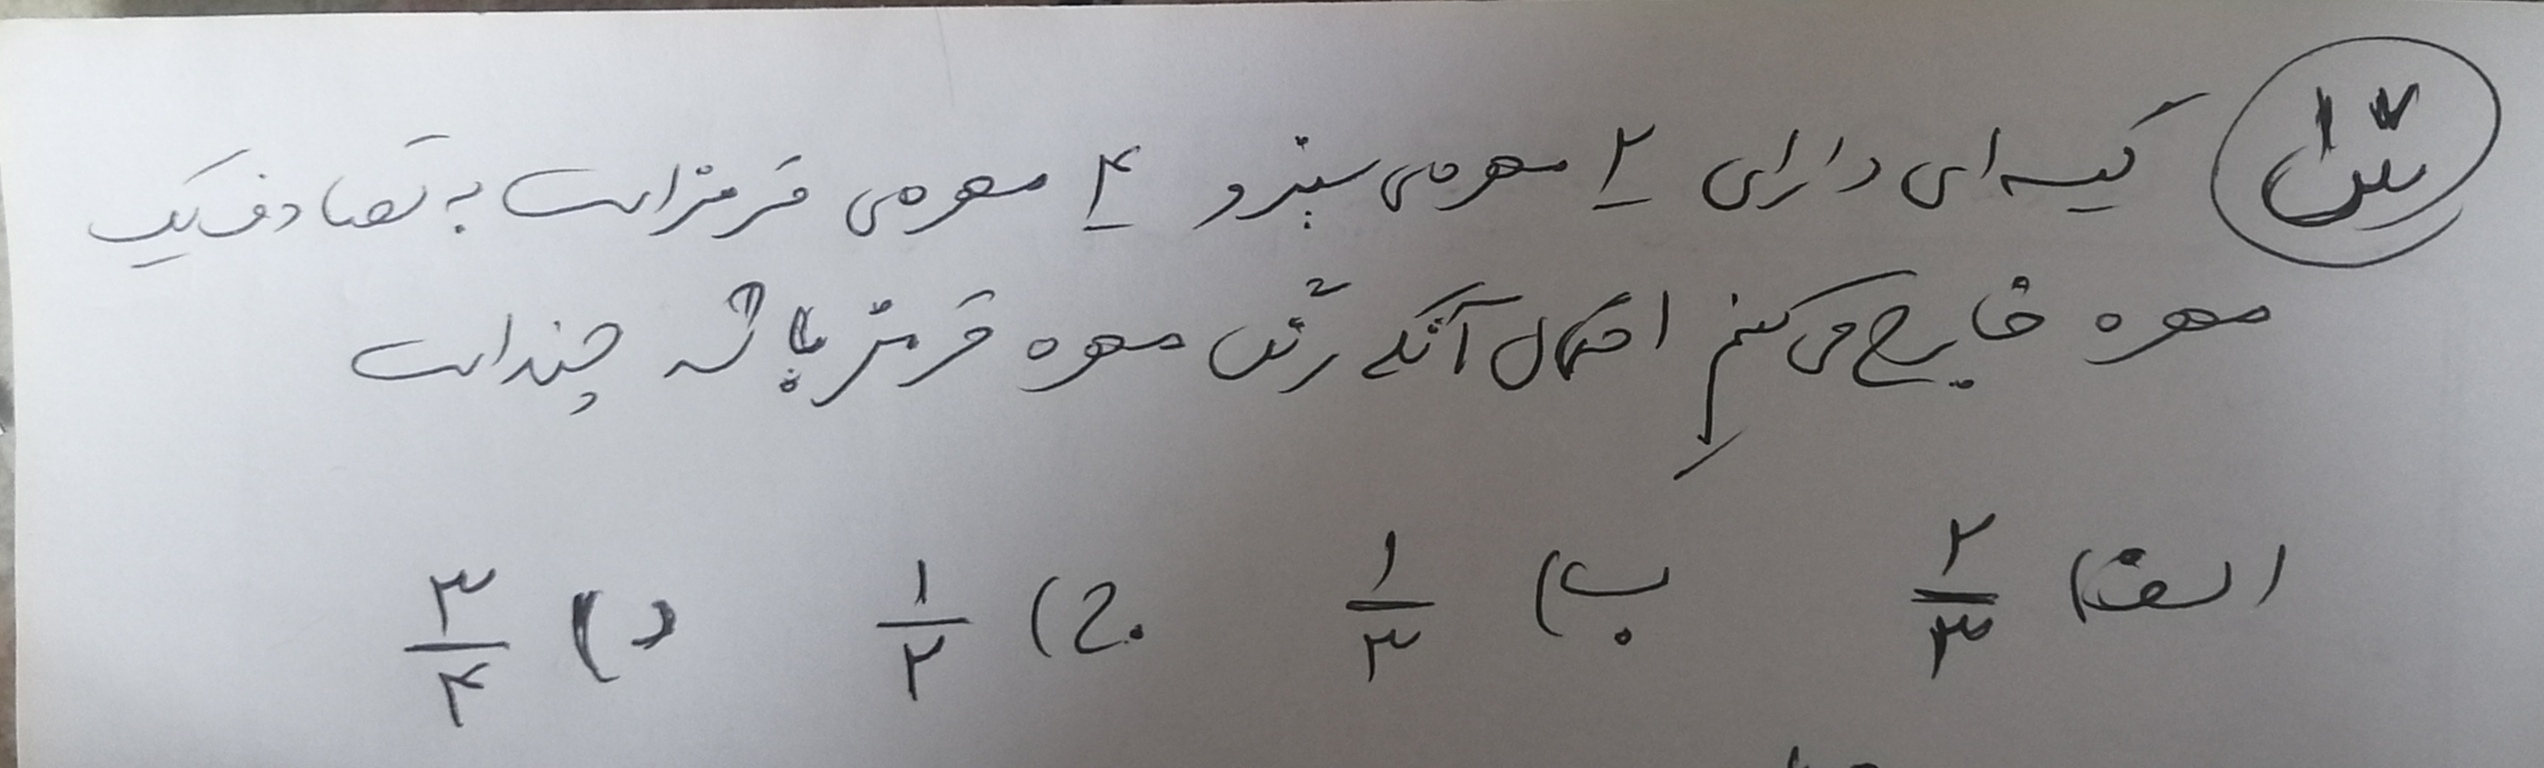 کیسه ای دارای ۲ مهره‌ی سبز و ۴ مهره‌ی قرمز است به تصادف یک
مهره خارج می کنیم احتمال آنکه رنگ مهره قرمز باشد چند است
الف) ۲/۳ ب) ۱/۳ ج) ۱/۲ د) ۳/۴